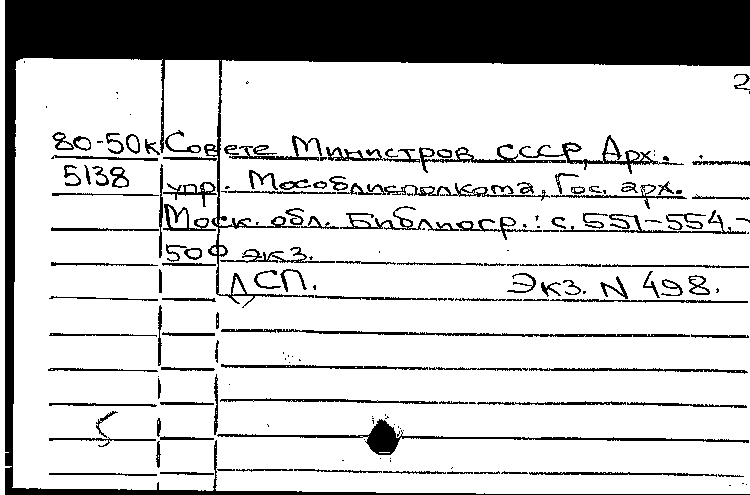 2
80-50к Совете Министров СССР, Арх.
5138 упр. Мособлисполкома, Гос. арх.
Моск. обл. Библиогр.: с. 551-554.-
500 экз.
ДСП. Экз. N 498.
5